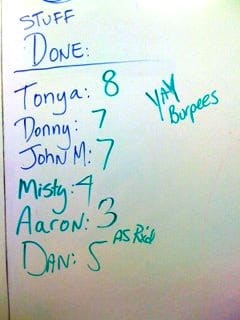 STUFF
DONE:
Tonya: 8
Donny: 7
John M: 7
Misty: 4
Aaron: 3
DAN: 5 AS Rx'd
YAY
Burpees